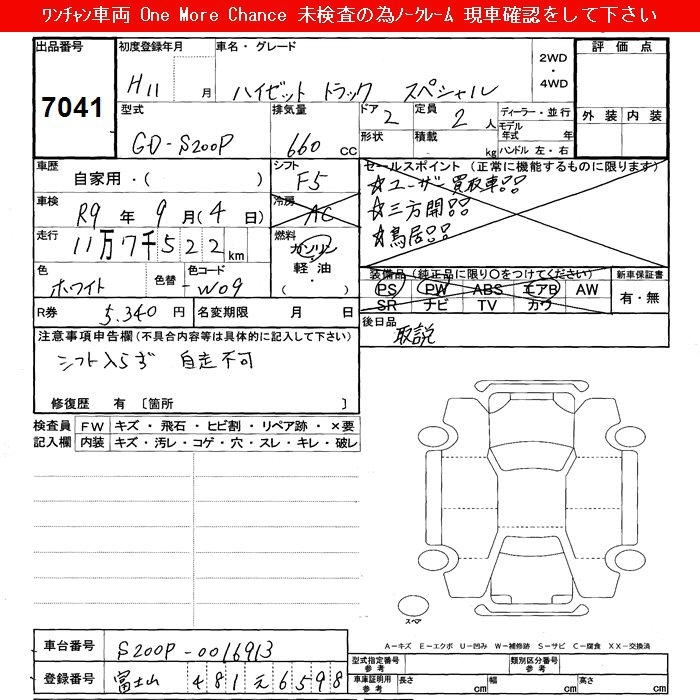 ﾜﾝﾁｬﾝ車両 One More Chance 未検査の為ﾉｰｸﾚｰﾑ 現車確認をして下さい
出品番号
7041
初度登録年月
H11 月
車名・グレード
ハイゼット トラック スペシャル
2WD
・
4WD
評価点
外装 内装
型式
GD-S200P
排気量
660 CC
ドア
2
定員
2 人
形状
積載
kg
ディーラー・並行
モデル
年式 年
ハンドル 左・右
車歴
自家用・( )
シフト
F5
車検
R9 年 9 月 (4 日)
冷房
AC
走行
11万7千522 km
燃料
ガソリン
軽油
・( )
色
ホワイト
色替
色コード
-W09
R券
5.340 円
名変期限 月 日
セールスポイント(正常に機能するものに限ります)
☆ユーザー買取車!!
☆三方開!!
☆鳥居!!
装備品(純正品に限り○をつけてください)
PS PW ABS エアB AW
SR ナビ TV カワ
新車保証書
有・無
後日品
取説
注意事項申告欄(不具合内容等は具体的に記入して下さい)
シフト入らず 自走不可
修復歴 有 〔箇所 〕
検査員
記入欄
FW キズ・飛石・ヒビ割・リペア跡・×要
内装 キズ・汚レ・コゲ・穴・スレ・キレ・破レ
スペア
A－キズ E－エクボ U－凹み W－補修跡 S－サビ C－腐食 XX－交換済
車台番号
S200P-0016913
登録番号
富士山 481 え 6598
型式指定番号
参考
類別区分番号
参考
車庫証明用
参考
長さ cm 幅 cm 高さ cm